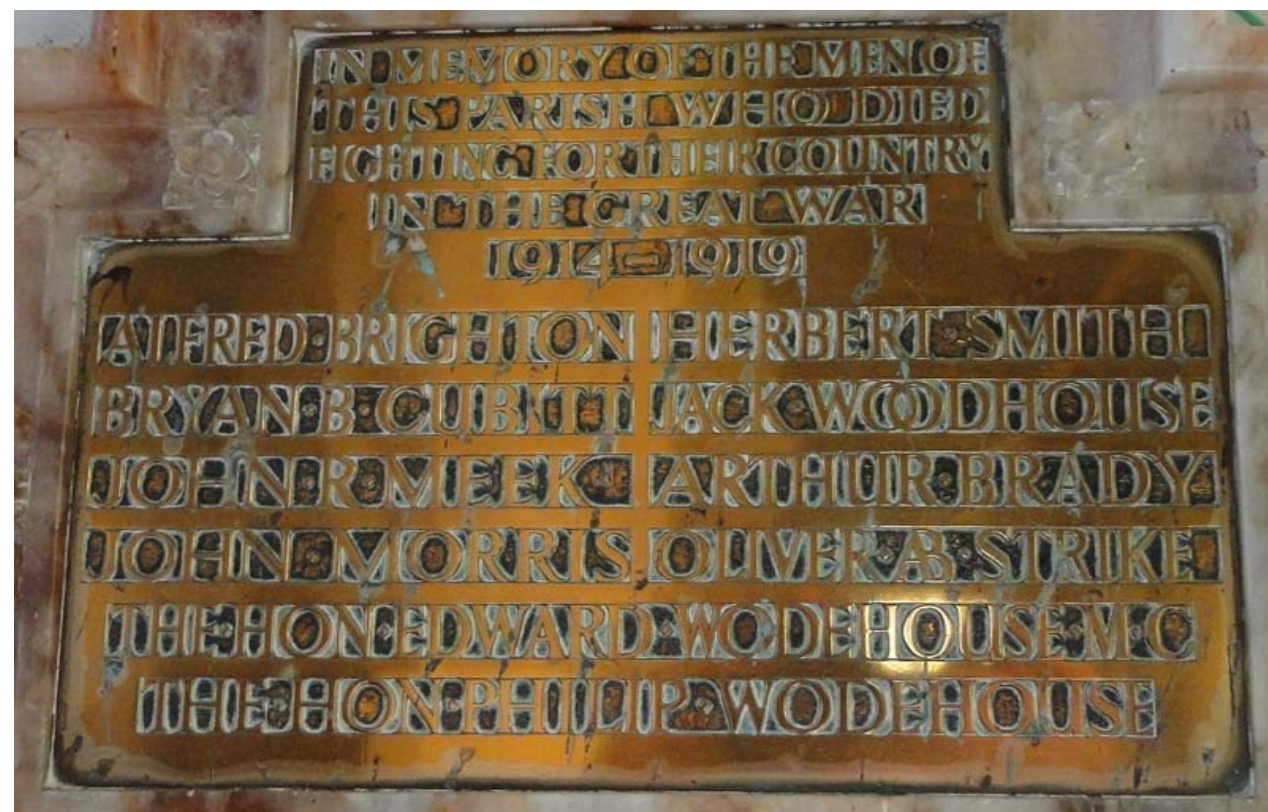 IN MEMORY OF THE MEN OF
THIS PARISH WHO DIED
FIGHTING FOR THEIR COUNTRY
IN THE GREAT WAR
1914-1919
ALFRED·BRIGHTON HERBERT·SMITH
BRYAN·B·CUBITT JACK·WOODHOUSE
JOHN·R·MEEK ARTHUR·BRADY
JOHN·MORRIS OLIVER·AB·STRIKE
THE·HON·EDWARD·WODEHOUSE·M·C
THE·HON·PHILIP·WODEHOUSE